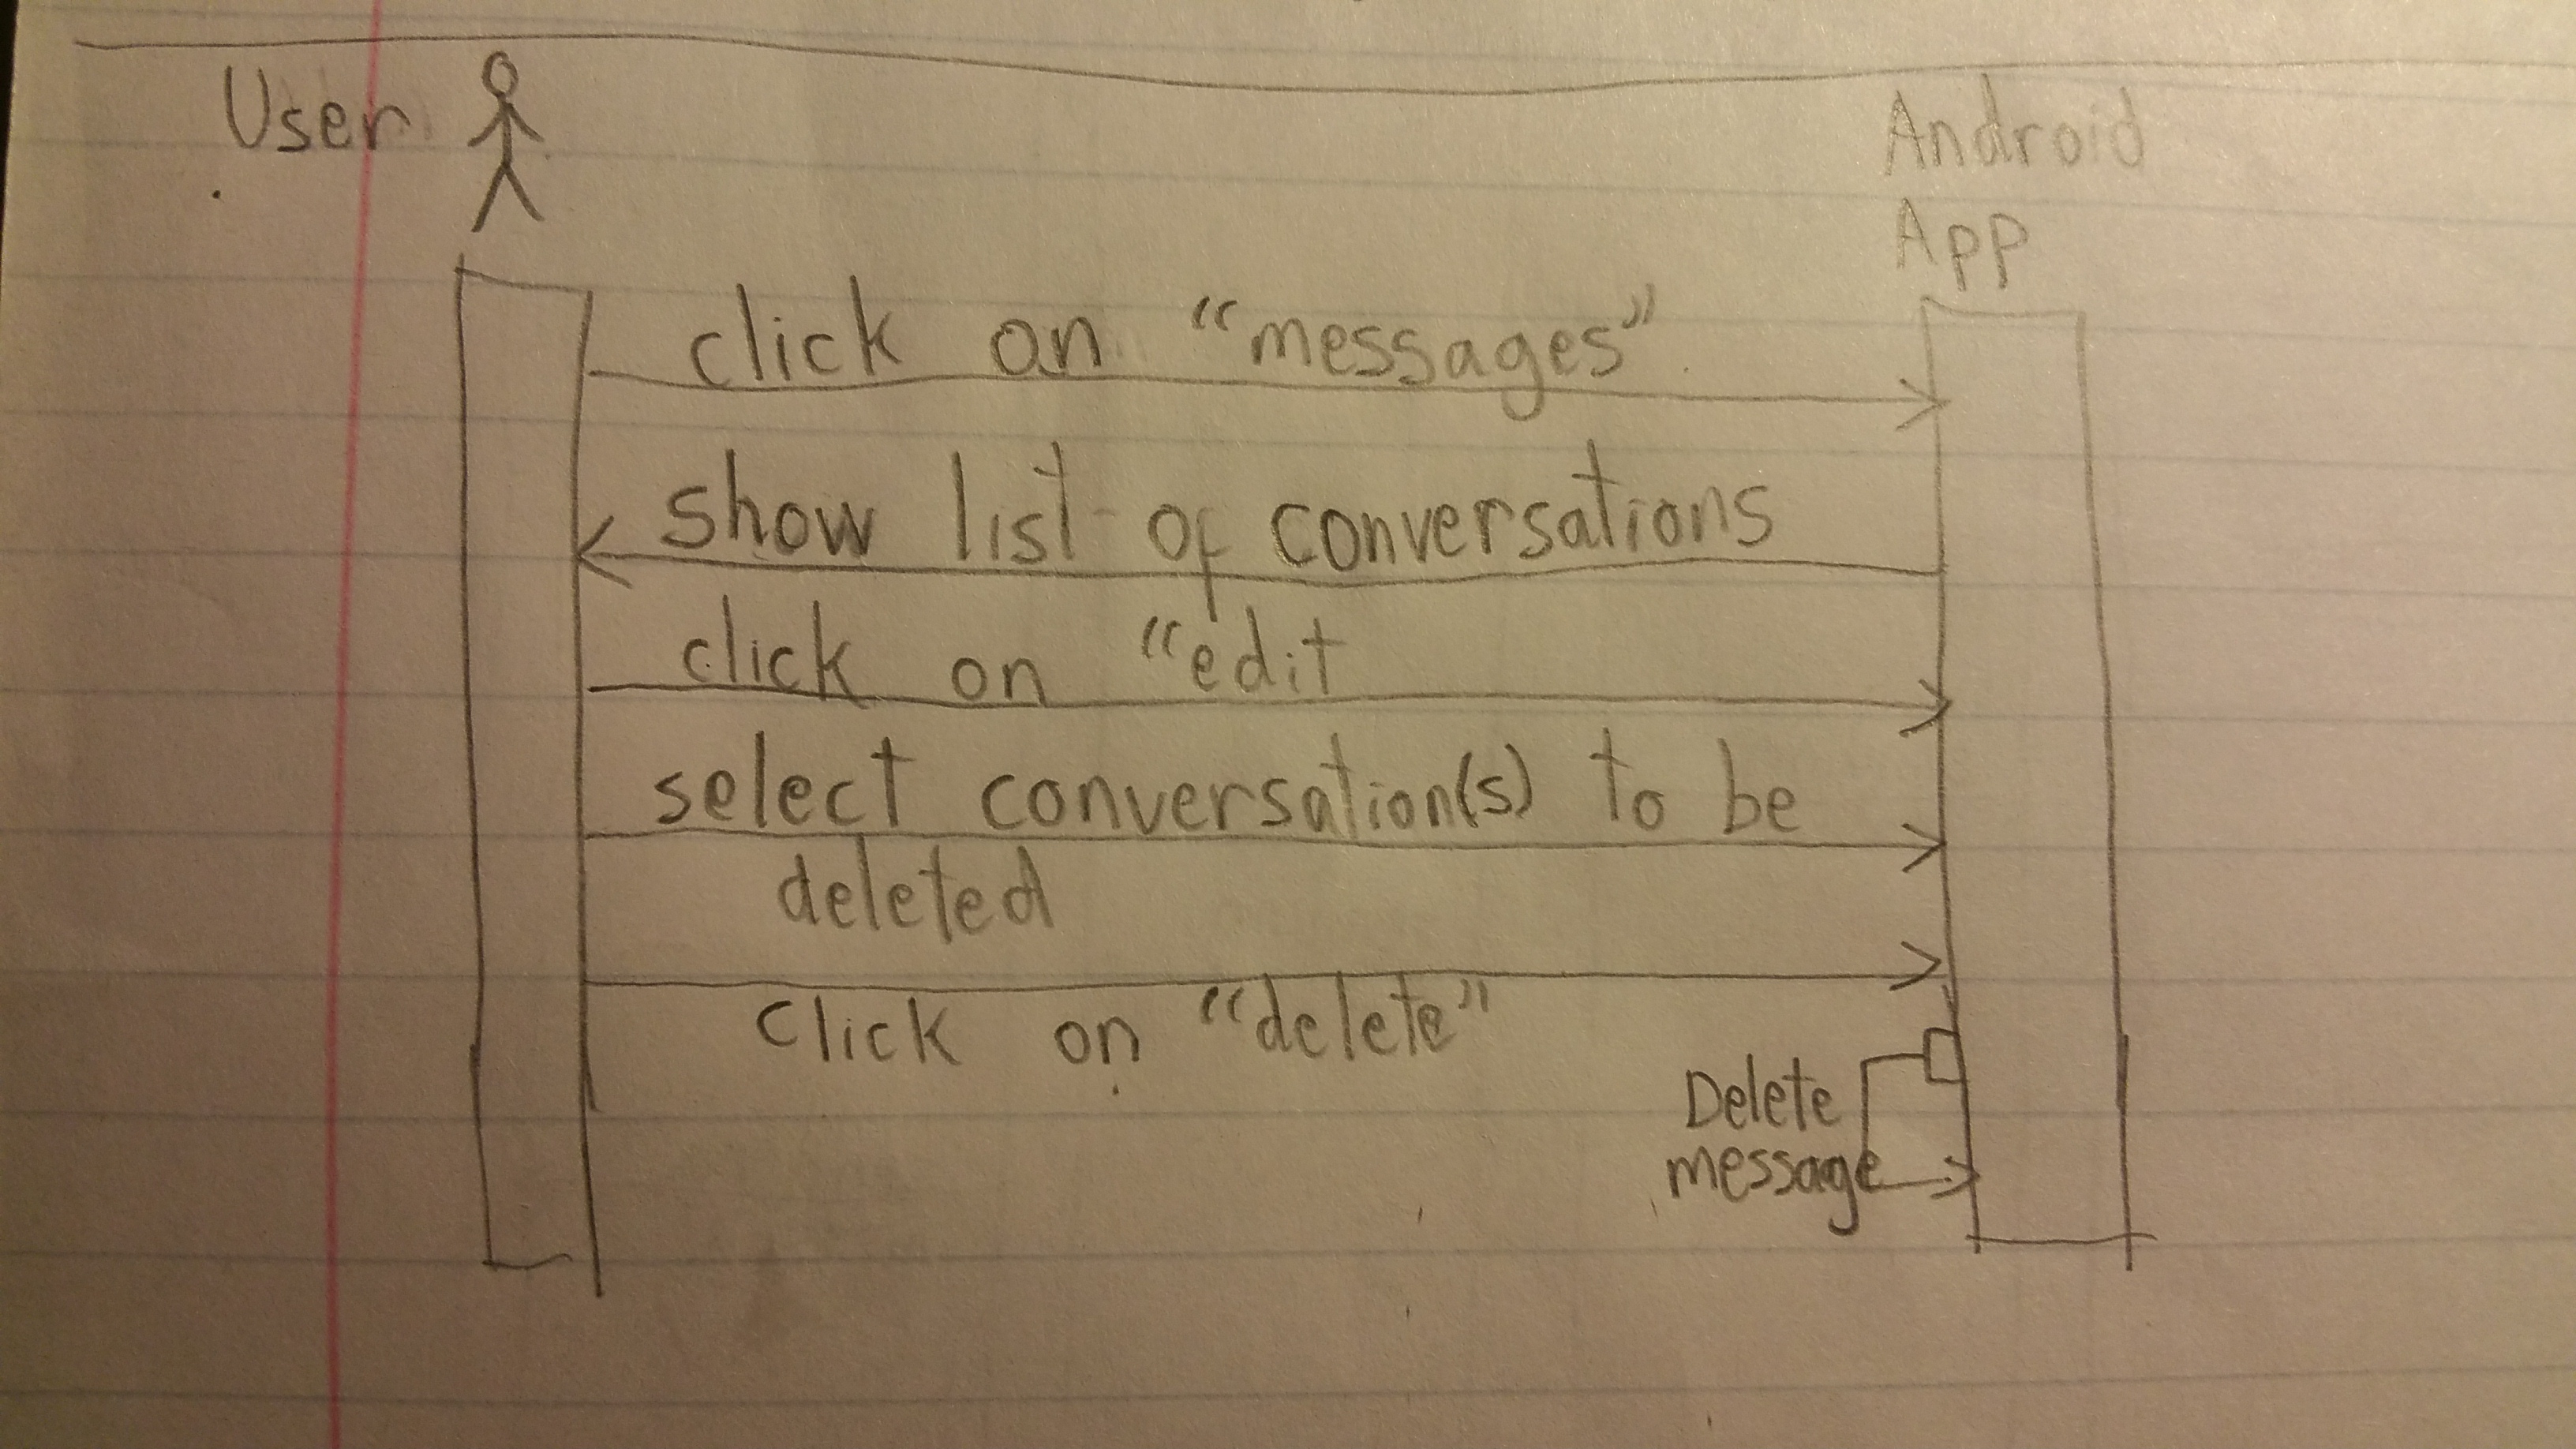 User
Android
App
click on "messages"
show list of conversations
click on "edit
select conversation(s) to be
deleted
click on "delete"
Delete
message